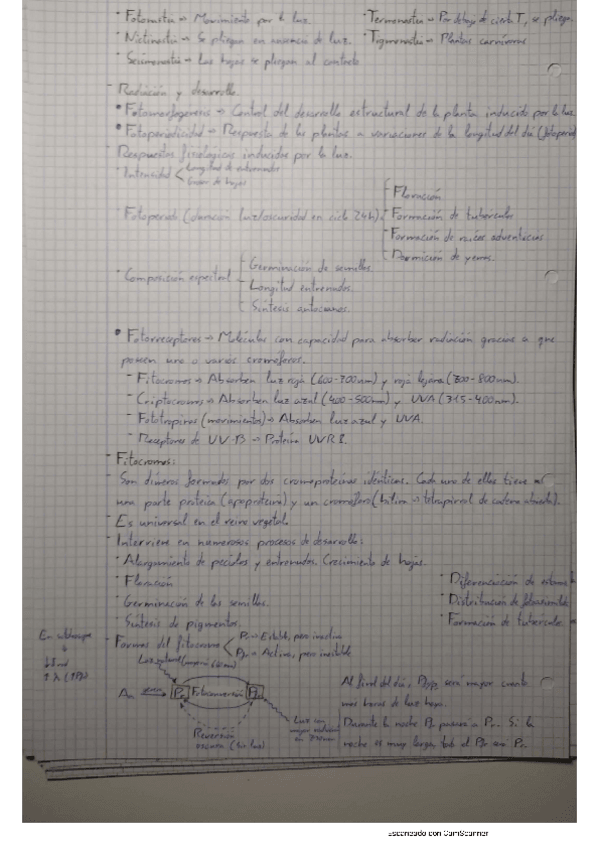 · Fotonastia → Movimiento por la luz.
· Termonastia → Por debajo de cierta T, se pliega.
· Nictinastia → Se pliegan en ausencia de luz.
· Tigmonastia → Plantas carnívoras
· Seismonastia → Las hojas se pliegan al contacto
- Radiación y desarrollo.
• Fotomorfogénesis → Control del desarrollo estructural de la planta inducido por la luz.
• Fotoperiodicidad → Respuesta de las plantas a variaciones de la longitud del día (fotoperiod
- Respuestas fisiológicas inducidas por la luz.
· Intensidad
Longitud de entrenudos
Grosor de hojas
· Fotoperiodo (duración luz/oscuridad en ciclo 24h)
- Floración
- Formación de tubérculos
- Formación de raíces adventicias
- Dormición de yemas.
· Composición espectral
- Germinación de semillas.
- Longitud entrenudos.
- Síntesis antocianos.
• Fotorreceptores → Moléculas con capacidad para absorber radiación gracias a que
poseen uno o varios cromóforos.
- Fitocromos → Absorben luz roja (600-700nm) y rojo lejano (700-800nm).
- Criptocromos → Absorben luz azul (400-500nm) y UVA (315-400nm).
- Fototropinas (movimientos) → Absorben luz azul y UVA.
- Receptores de UV-B → Proteína UVR8.
- Fitocromos:
· Son dímeros formados por dos cromoproteínas idénticas. Cada una de ellas tiene
una parte proteica (apoproteína) y un cromóforo (bilina → tetrapirrol de cadena abierta).
· Es universal en el reino vegetal.
· Interviene en numerosos procesos de desarrollo:
· Alargamiento de pecíolos y entrenudos. Crecimiento de hojas.
· Floración
· Diferenciación de estomas
· Germinación de las semillas.
· Distribución de fotoasimilados
· Síntesis de pigmentos.
· Formación de tubérculos
· Formas del fitocromo
Pr → Estable, pero inactiva
Pfr → Activa, pero inestable
Aa
Pr
Fotoconversión
Pfr
Reversión
oscura (sin luz)
Luz con
mayor radiación
en 730nm
Al final del día, Pfr será mayor cuanto
más horas de luz haya.
Durante la noche Pfr pasará a Pr. Si la
noche es muy larga, todo el Pfr será Pr.
Escaneado con CamScanner